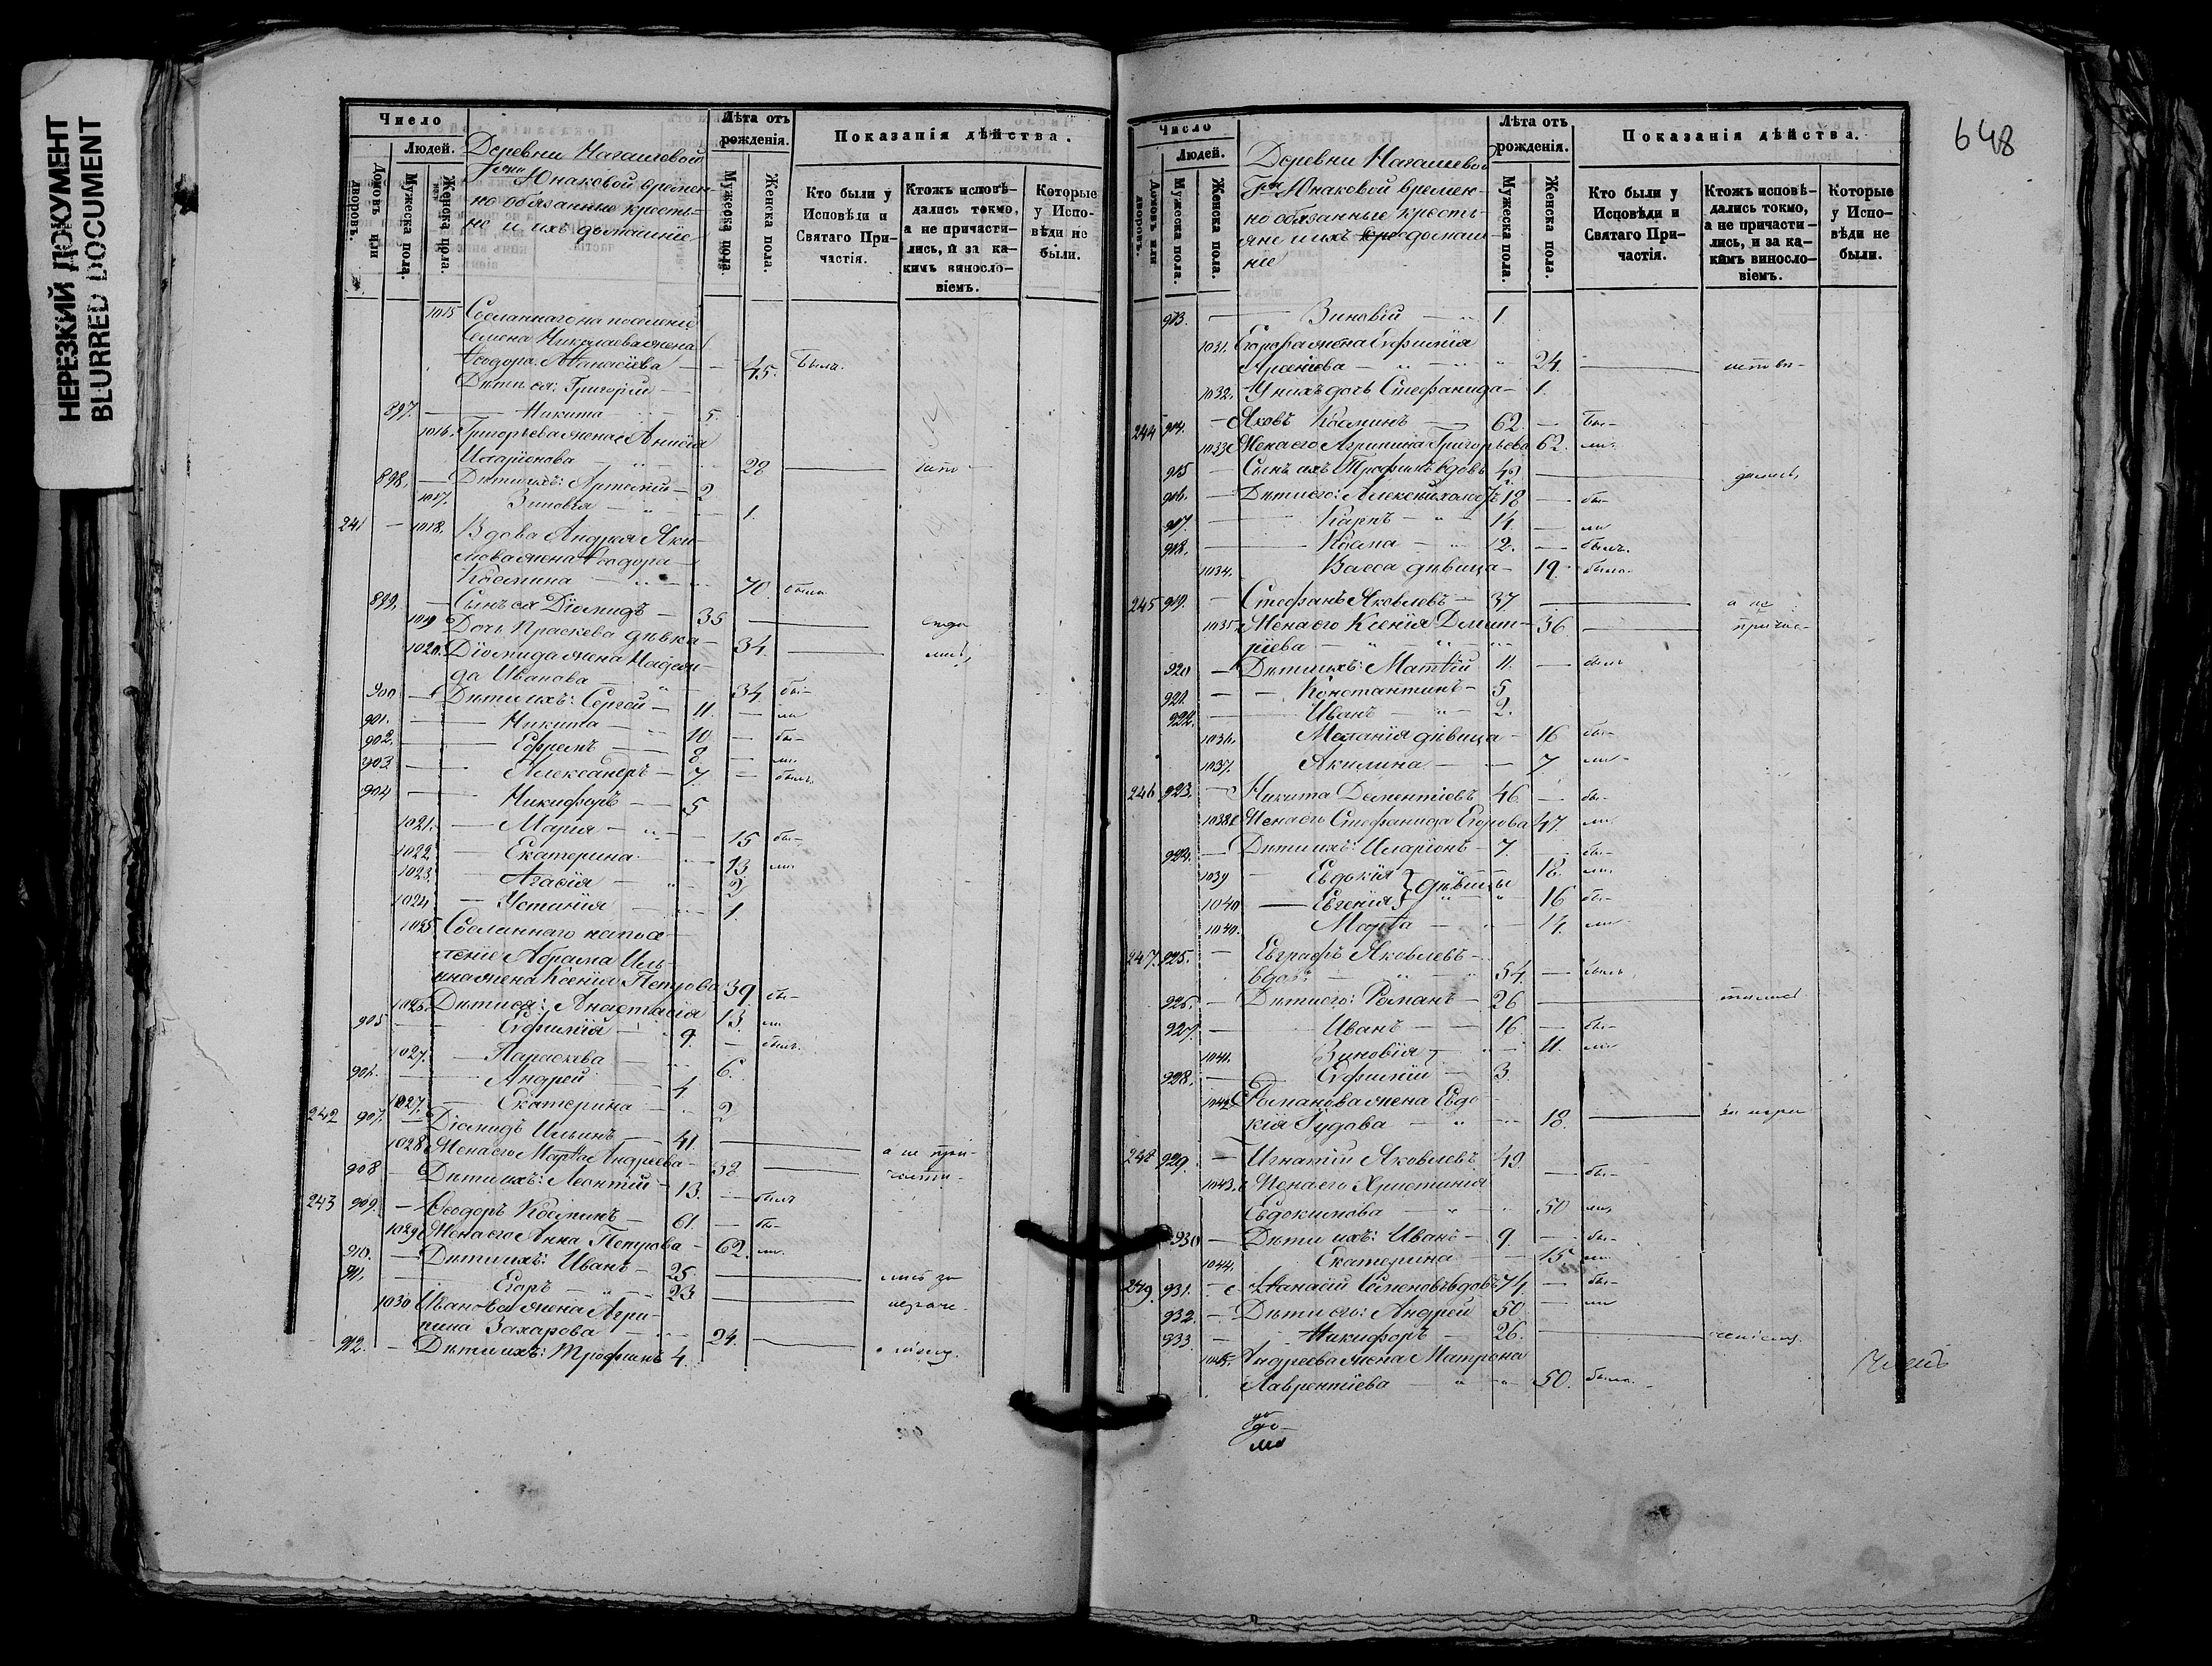 НЕРЕЗКИЙ ДОКУМЕНТ
BLURRED DOCUMENT
Число
Людей.
Домовъ или дворовъ.
Мужеска пола.
Женска пола.
Деревни Нагашевой
Г-жи Юнаковой времен-
но обязанные крестья-
не и ихъ домашніе
Лѣта отъ рожденія.
Мужеска пола.
Женска пола.
Показанія дѣйства.
Кто были у Исповѣди и Святаго При-частія.
Ктожъ исповѣ-дались токмо, а не причасти-лись, и за ка-кимъ винословіемъ.
Которые у Испо-вѣди не были.
1015 Сосланнаго на поселеніе
Семена Николаева жена
Ѳеодора Аѳанасіева 45. была.
Дѣти ея: Григорій
897. Никита 5.
1016. Григорьева жена Анисія
Иларіонова 28
898. Дѣти ихъ: Артемій 2
1017. Зиновія 1.
241 1018. Вдова Андрея Яки-
мова жена Ѳеодора
Косьмина 70. была
899. Сынъ ея Діомидъ 35
1019 Дочь Праскева дѣвка 34.
1020. Діомида жена Надеж-
да Иванова 34. бы-
900 Дѣти ихъ: Сергей 11. ли
901. Никита 10 бы-
902. Ефремъ 8. ли
903 Александръ 7. былъ
904 Никифоръ 5
1021. Марія 15 бы-
1022 Екатерина 13 ли
1023. Агаѳія 2
1024. Устинія 1.
1025. Сосланнаго на посе-
леніе Абрама Иль-
ина жена Ксенія Петрова 39. бы-
1026. Дѣти ея: Анастасія 13. ли
905 Евфимій 9. былъ.
1027. Параскева 6.
906. Андрей 4
1027. Екатерина 2
242 907. Діомидъ Ильинъ 41
1028 Жена его Марѳа Андреева 32 а не при-
908 Дѣти ихъ: Леонтій 13. былъ части-
243 909. Ѳеодоръ Косьминъ 61. бы-
1029 Жена его Анна Петрова 62. ли.
910. Дѣти ихъ: Иванъ 25 лись за
911. Егоръ 23
1030 Иванова жена Агри-
пина Захарова 24.
912. Дѣти ихъ: Трофимъ 4.
648
Число
Людей.
Домовъ или дворовъ.
Мужеска пола.
Женска пола.
Деревни Нагашевой
Г-жи Юнаковой времен-
но обязанные кресть-
яне и ихъ домаш-
ніе
Лѣта отъ рожденія.
Мужеска пола.
Женска пола.
Показанія дѣйства.
Кто были у Исповѣди и Святаго При-частія.
Ктожъ исповѣ-дались токмо, а не причасти-лись, и за ка-кимъ винословіемъ.
Которые у Испо-вѣди не были.
913. Зиновій 1.
1031. Егора жена Евфимія
24. испо­вѣ-
1032. У нихъ дочь Стефанида 1.
244 914. Яковъ Косьминъ 62. бы-
1033 Жена его Агрипина Григорьева 62. ли
915 Сынъ ихъ Трофимъ вдовъ 42 дались,
916. Дѣти его: Алексей холос. 18 бы-
917. Карпъ 14. ли
918. Косма 12. былъ.
1034. Васса дѣвица 19. была
245 919. Стефанъ Яковлевъ 37. а не
1035 Жена его Ксенія Димит- 36 причас-
ріева
920 Дѣти ихъ: Матѳій 11. былъ
921. Константинъ 5
922. Иванъ 2.
1036. Меланія дѣвица 16 бы-
1037. Акилина 7 ли
246 923. Никита Дементіевъ 46 бы-
1038 Жена его Стефанида Егорова 47. ли
924. Дѣти ихъ: Иларіонъ 7. бы-
1039 Евдокія дѣвицы 18. ли
1040 Евгенія 16 бы-
1040. Марѳа 14. ли
247. 925. Евграфъ Яковлевъ
вдовъ 54. былъ
926. Дѣти его: Романъ 26 тились
927. Иванъ 16 бы-
1041. Зиновія 11. ли
928. Евфимій 3.
1042 Романова жена Евдо-
кія Іудова 18. за нера
248 929. Игнатій Яковлевъ 49. бы-
1043. Жена его Христинія
Евдокимова 50 ли
930 Дѣти ихъ: Иванъ 9. бы-
1044. Екатерина 15 ли
249. 931. Аѳанасій Семеновъ вдовъ 74. бы-
932. Дѣти его: Андрей 50 ли
933 Никифоръ 26.
1045. Андреева жена Матрона
Лаврентіева 50. была.